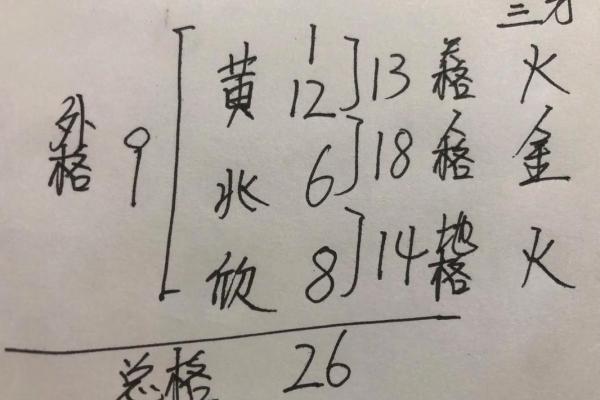 三才
1
黄 12 13 天格 火
外格 9
兆 6 18 人格 金
欣 8 14 地格 火
总格 26